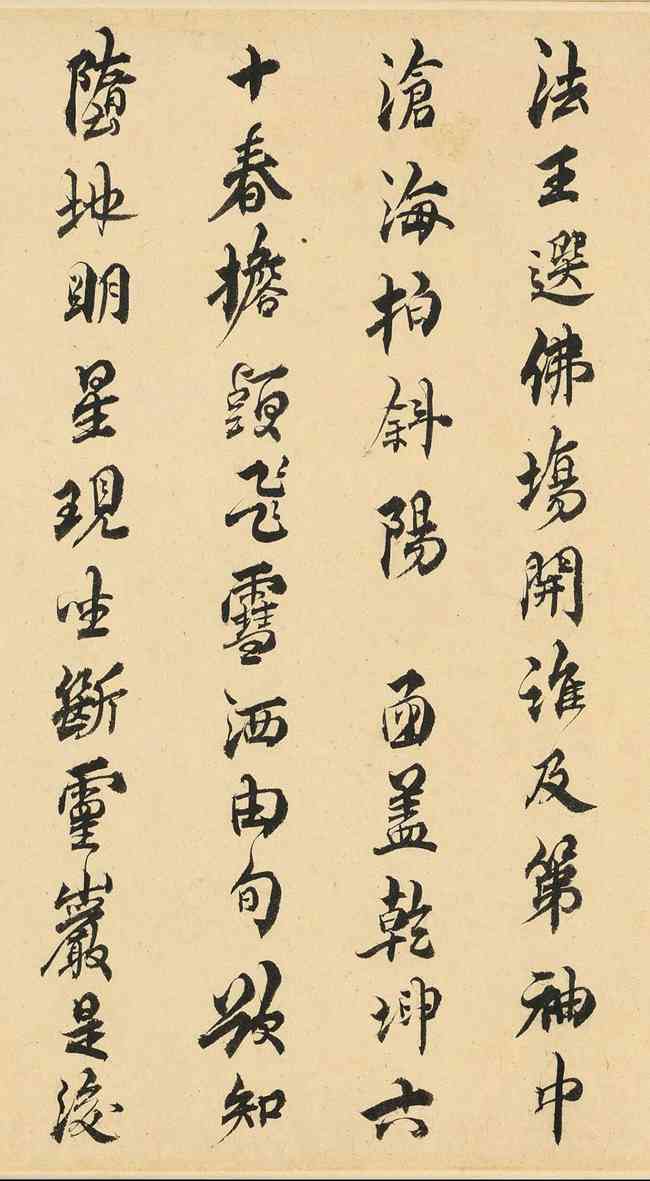 法王選佛場開誰及第袖中
滄海拍斜陽 函盖乾坤六
十春擔頭飛雪洒由旬欲知
墮地明星現坐斷靈巖是後